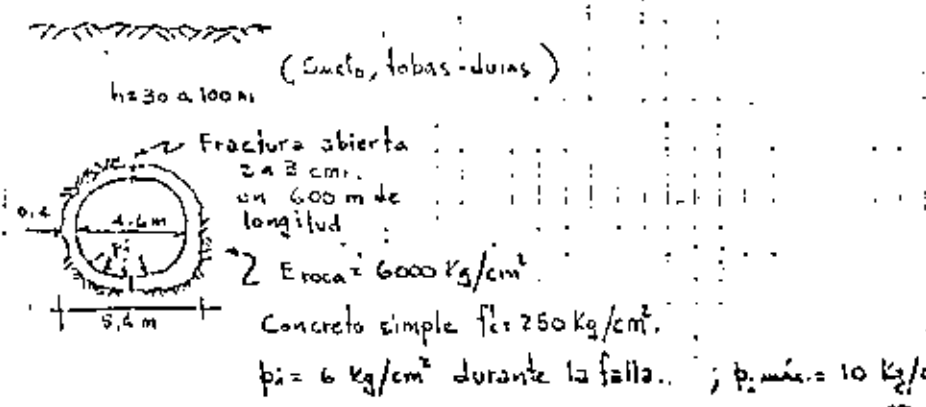 (Suelo, tobas-duras)
h=30 a 100 m
Fractura abierta
2 a 3 cm.
en 600 m de
longitud
0.4
4.6 m
Pi
E roca = 6000 Kg/cm²
5.4 m
Concreto simple f'c= 250 Kg/cm².
pi = 6 Kg/cm² durante la falla. ; pi máx. = 10 Kg/c